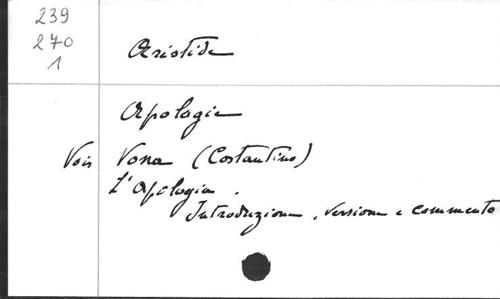 239
270
1
Aristide
Apologie
Voir Vona (Costantino)
L'Apologia.
Introduzione, versione e commento